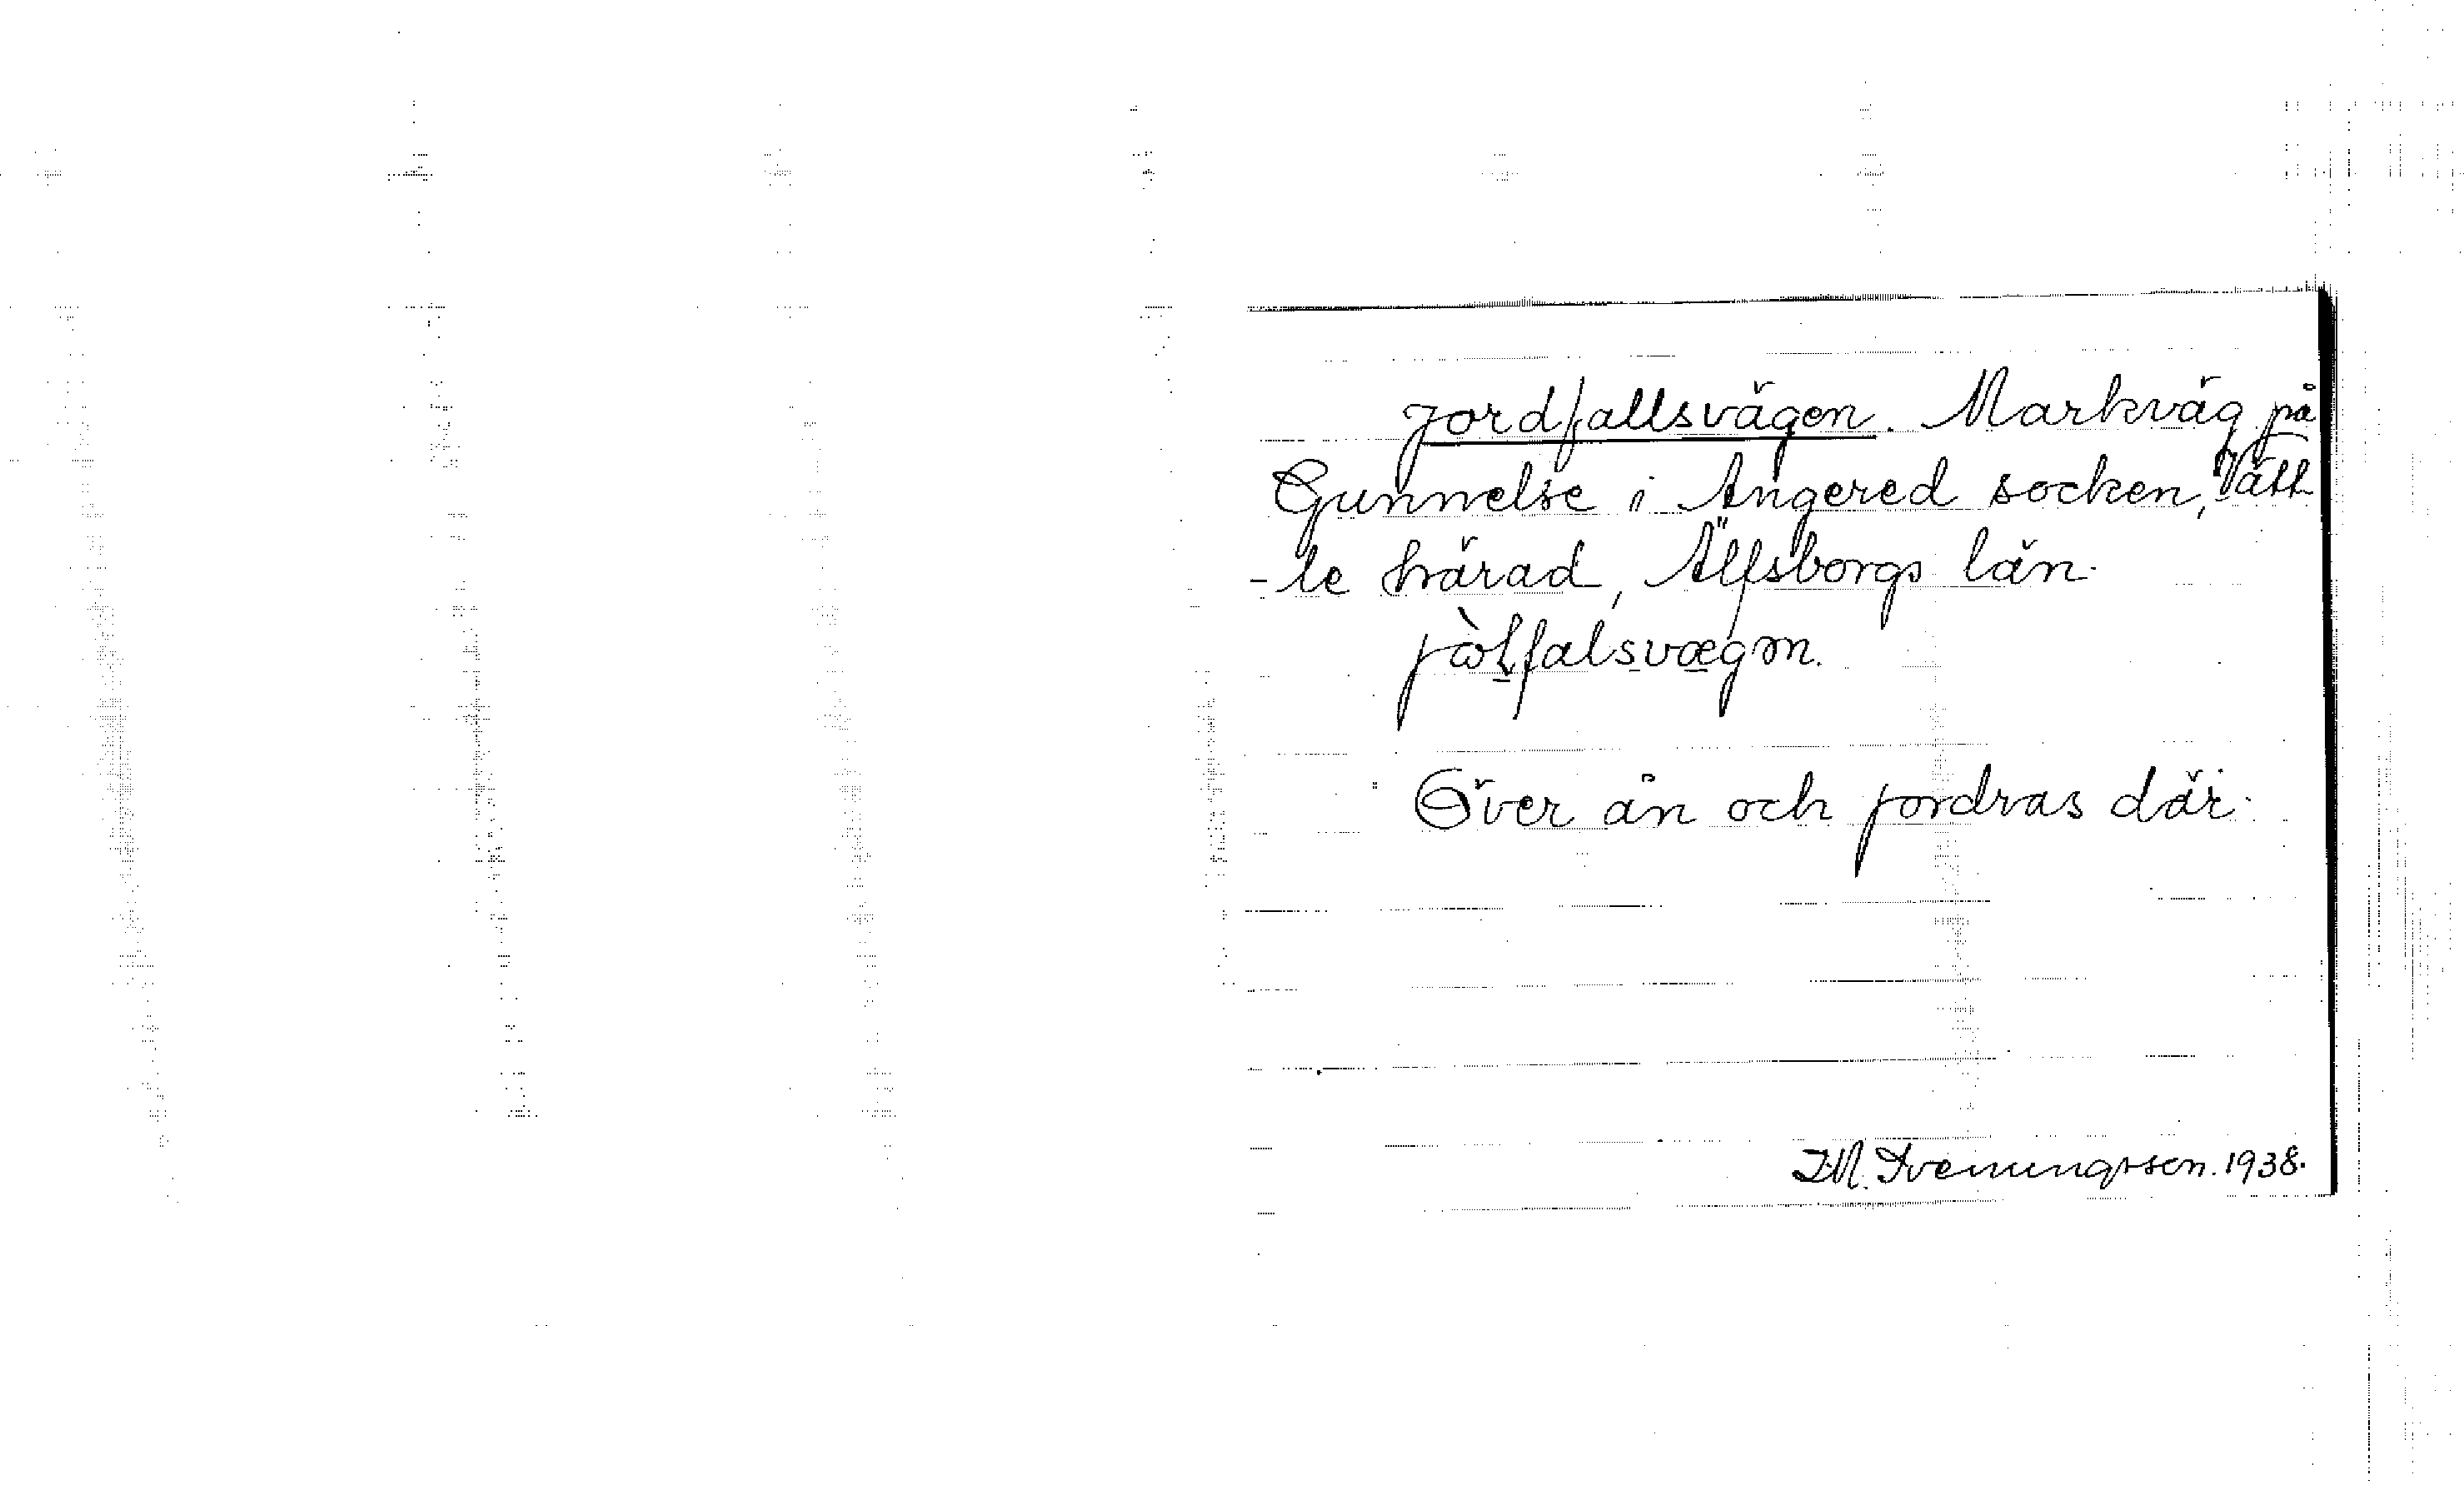 Jordfallsvägen. Markväg på
Gunnelse i Angered socken, Vätt
-le härad, Älfsborgs län.
jòlfalsvægən.
Över ån och jordras där.
J.M. Svenungsson. 1938.